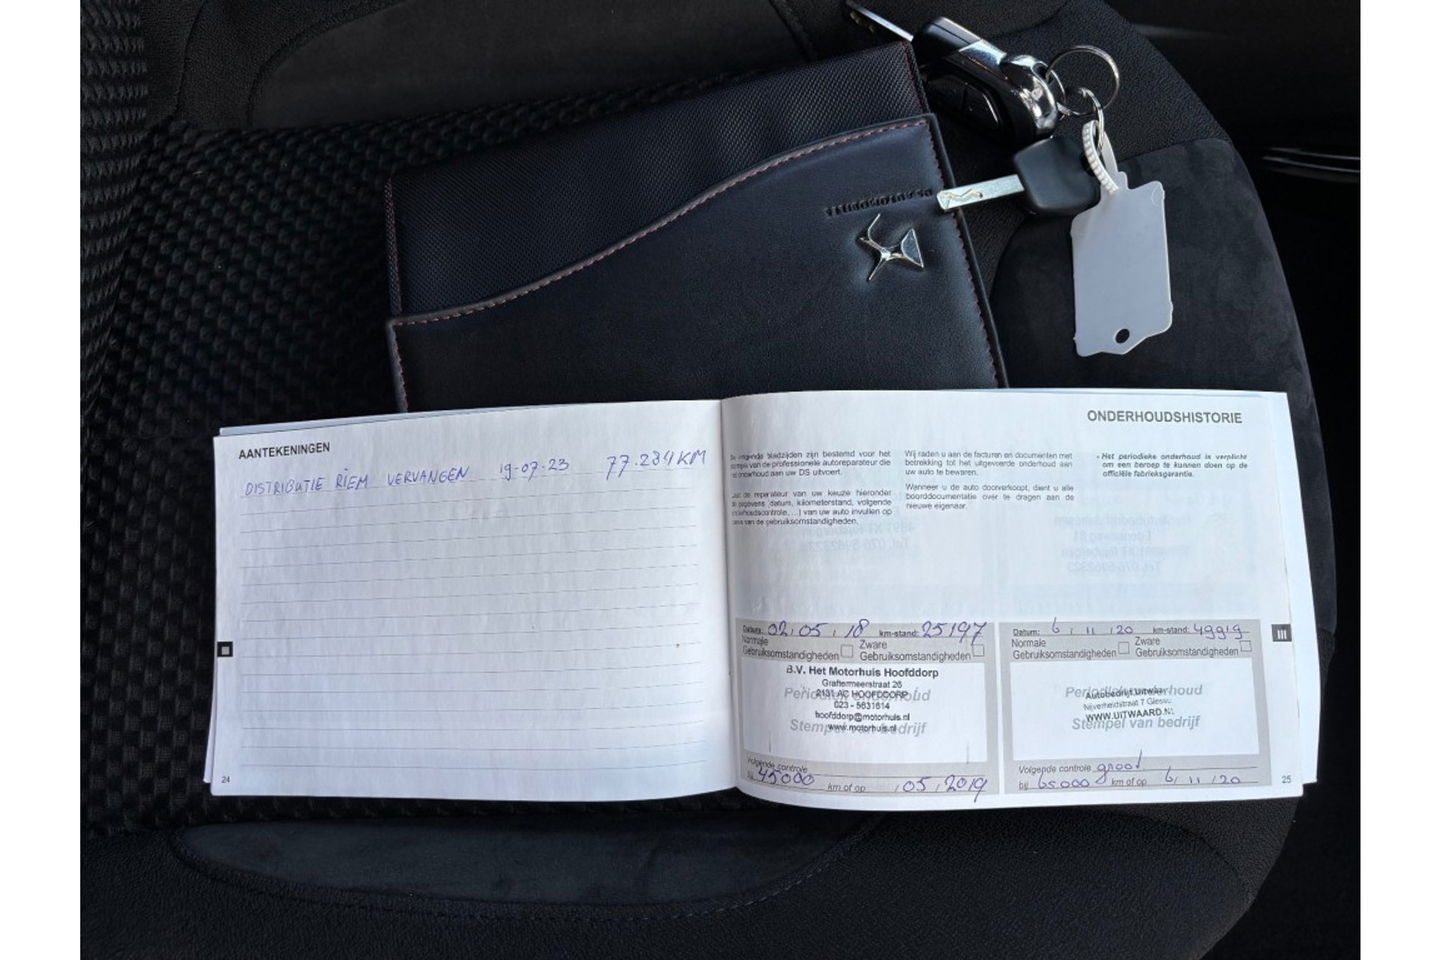 AANTEKENINGEN
DISTRIBUTIE RIEM VERVANGEN 19-07-23 77.284 KM
24
ONDERHOUDSHISTORIE
volgende bladzijden zijn bestemd voor het
van de professionele autoreparateur die
onderhoud aan uw DS uitvoert.
de reparateur van uw keuze hieronder
gegevens (datum, kilometerstand, volgende
onderhoudscontrole, ...) van uw auto invullen op
van de gebruiksomstandigheden.
Wij raden u aan de facturen en documenten met
betrekking tot het uitgevoerde onderhoud aan
uw auto te bewaren.
Wanneer u de auto doorverkoopt, dient u alle
boorddocumentatie over te dragen aan de
nieuwe eigenaar.
- Het periodieke onderhoud is verplicht
om een beroep te kunnen doen op de
officiële fabrieksgarantie.
Datum: 02, 05, 18 km-stand: 25197
Normale Gebruiksomstandigheden
Zware Gebruiksomstandigheden
B.V. Het Motorhuis Hoofddorp
Graftermeerstraat 26
2131 AC HOOFDDORP
023 - 5631614
hoofddorp@motorhuis.nl
www.motorhuis.nl
Periodiek onderhoud
Stempel van bedrijf
Volgende controle
bij 45000 km of op , 05, 2019
Datum: 6, 11, 20 km-stand: 49919
Normale Gebruiksomstandigheden
Zware Gebruiksomstandigheden
Autobedrijf Uitwaard
Nijverheidstraat 7
WWW.UITWAARD.NL
Periodiek onderhoud
Stempel van bedrijf
Volgende controle groot
bij 65000 km of op 6, 11, 20
25